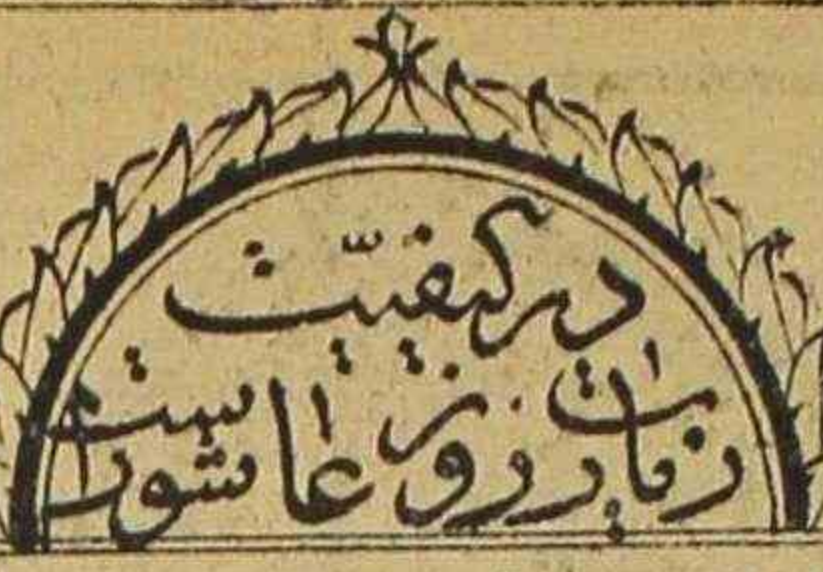 در کیفیّت
زیارت روز عاشوراست